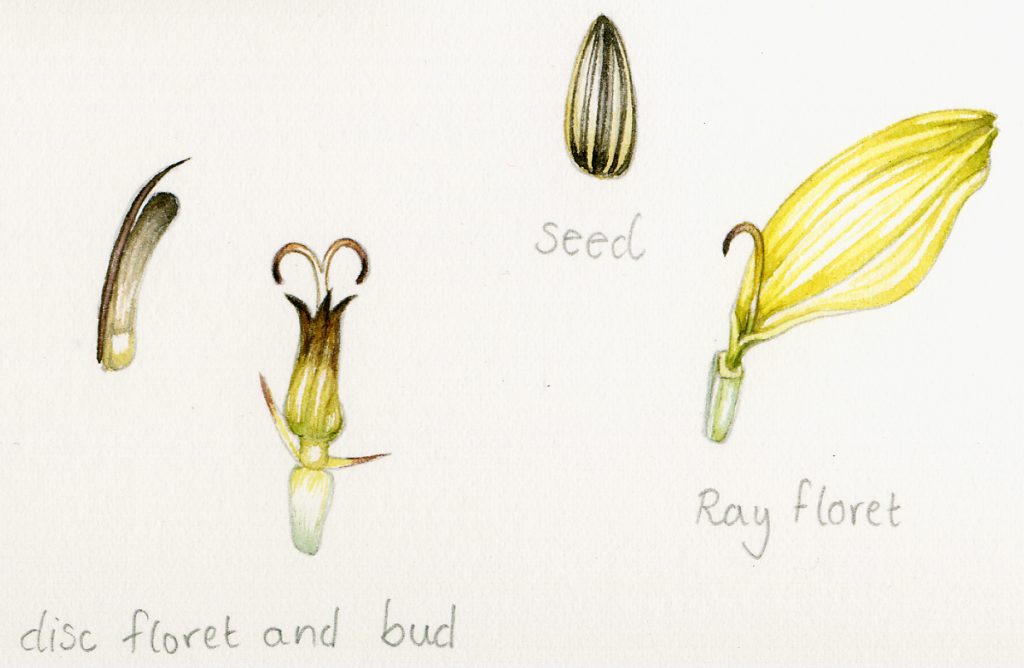 seed
Ray floret
disc floret and bud